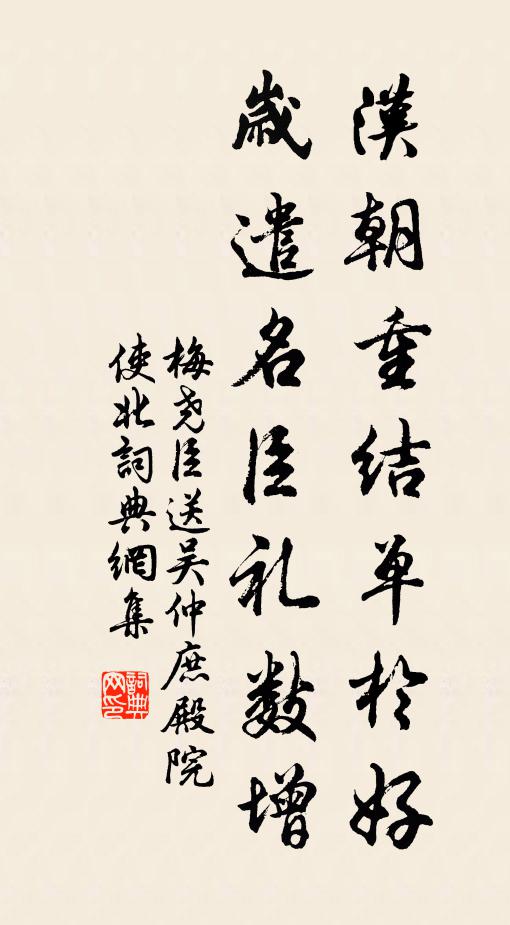 漢朝重结单於好
歲遣名臣礼数增
梅尧臣送吴仲庶殿院
使北詞典網集
詞典网印